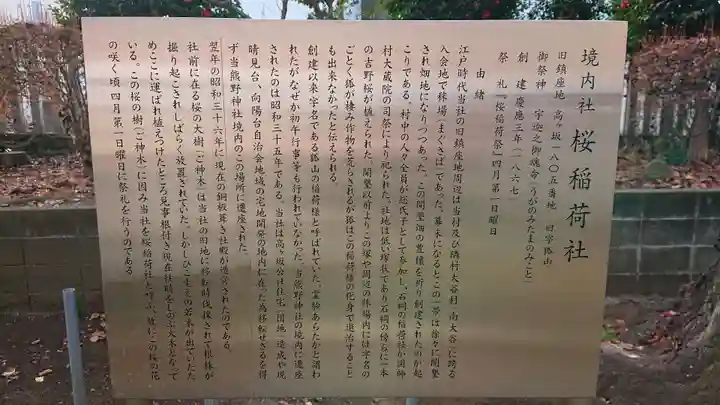 境内社 桜稲荷社
旧鎮座地 高ヶ坂一八〇五番地 旧字狢山
御祭神 宇迦之御魂命(うがのみたまのみこと)
創建 慶應三年(一八六七)
祭礼「桜稲荷祭」四月第一日曜日
由緒
江戸時代当社の旧鎮座地周辺は当村及び隣村大谷村(南大谷)に跨る
入会地で秣場(まぐさば)であった。幕末になるとこの一帯は徐々に開墾
され畑地になりつつあった。この開墾畑の豊穣を祈り創建されたのが起
こりである。村中の人々全員が近代氏子として参加し、石祠の稲荷社が同師
村大蔵院の司祭により祀られた。社地は低い塚状であり石祠の傍らに一本
の吉野桜が植えられた。開墾以前よりこの塚や周辺の秣場内には字名の
ごとく狢が棲み作物を荒らされるが狢はこの稲荷様の化身で退治すること
も出来なかったと伝えられる。
創建以来字名である狢山の稲荷様と呼ばれていた。霊験あらたかと謂わ
れたがなぜか初午行事等も行われていなかった。当熊野神社の境内に遷座
されたのは昭和三十五年である。当社は高ヶ坂公社住宅(団地)造成や現
晴見台、向陽台自治会地域の宅地開発の地内に在った為移転せざるを得
ず当熊野神社境内のこの場所に遷座された。
翌年の昭和三十六年に現在の銅板葺き社殿が造営されたのである。
社前に在る桜の大樹(ご神木)は当社の旧地に移転時伐採されて根株が
掘り起こされしばらく放置されていた。しかしひこばえの若木が出ていたた
めここに運ばれ植えつけたところ見事根付き現在往時をしのぶ大木となって
いる。この桜の樹(ご神木)に因み当社を桜稲荷社と呼び、故にこの桜の花
の咲く頃四月第一日曜日に祭礼を行うのである。